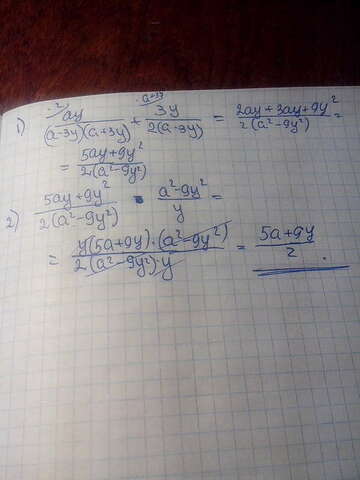 1) \2 ay / (a-3y)(a+3y) + \a+3y 3y / 2(a-3y) = 2ay+3ay+9y² / 2(a²-9y²) =
= 5ay+9y² / 2(a²-9y²)
2) 5ay+9y² / 2(a²-9y²) · a²-9y² / y =
= y(5a+9y)·(a²-9y²) / 2(a²-9y²)·y = 5a+9y / 2 .